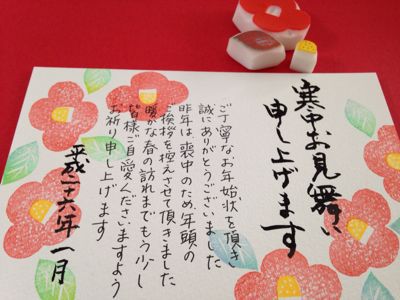 寒中お見舞い
申し上げます
ご丁寧なお年始状を頂き
誠にありがとうございました
昨年は、喪中のため、年頭の
ご挨拶を控えさせて頂きました
暖かな春の訪れまでもう少し
皆様ご自愛くださいますよう
お祈り申し上げます
平成二十六年一月